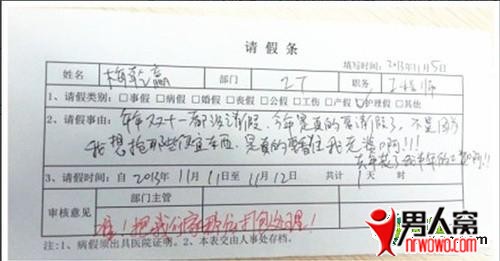 请假条
填写时间：2013年11月5日
姓名 梅乾赢 部门 IT 职务 工程师
1、请假类别：□事假 □病假 □婚假 □丧假 □公假 □工伤 □产假 □护理假 □其他
2、请假事由：年年双十一都没请假，今年是真的要请假了，不是因为
我想抢那些便宜东西，是真的要看住我老婆啊!!!
去年花了我半年的工资啊!!
3、请假时间：自2013年11月11日至11月12日 共计1天 时
审核意见 部门主管
准！把我们家那位打包处理！
注：1、病假须出具医院证明。2、本表交由人事处存档。
男人窝
nrwowo.com